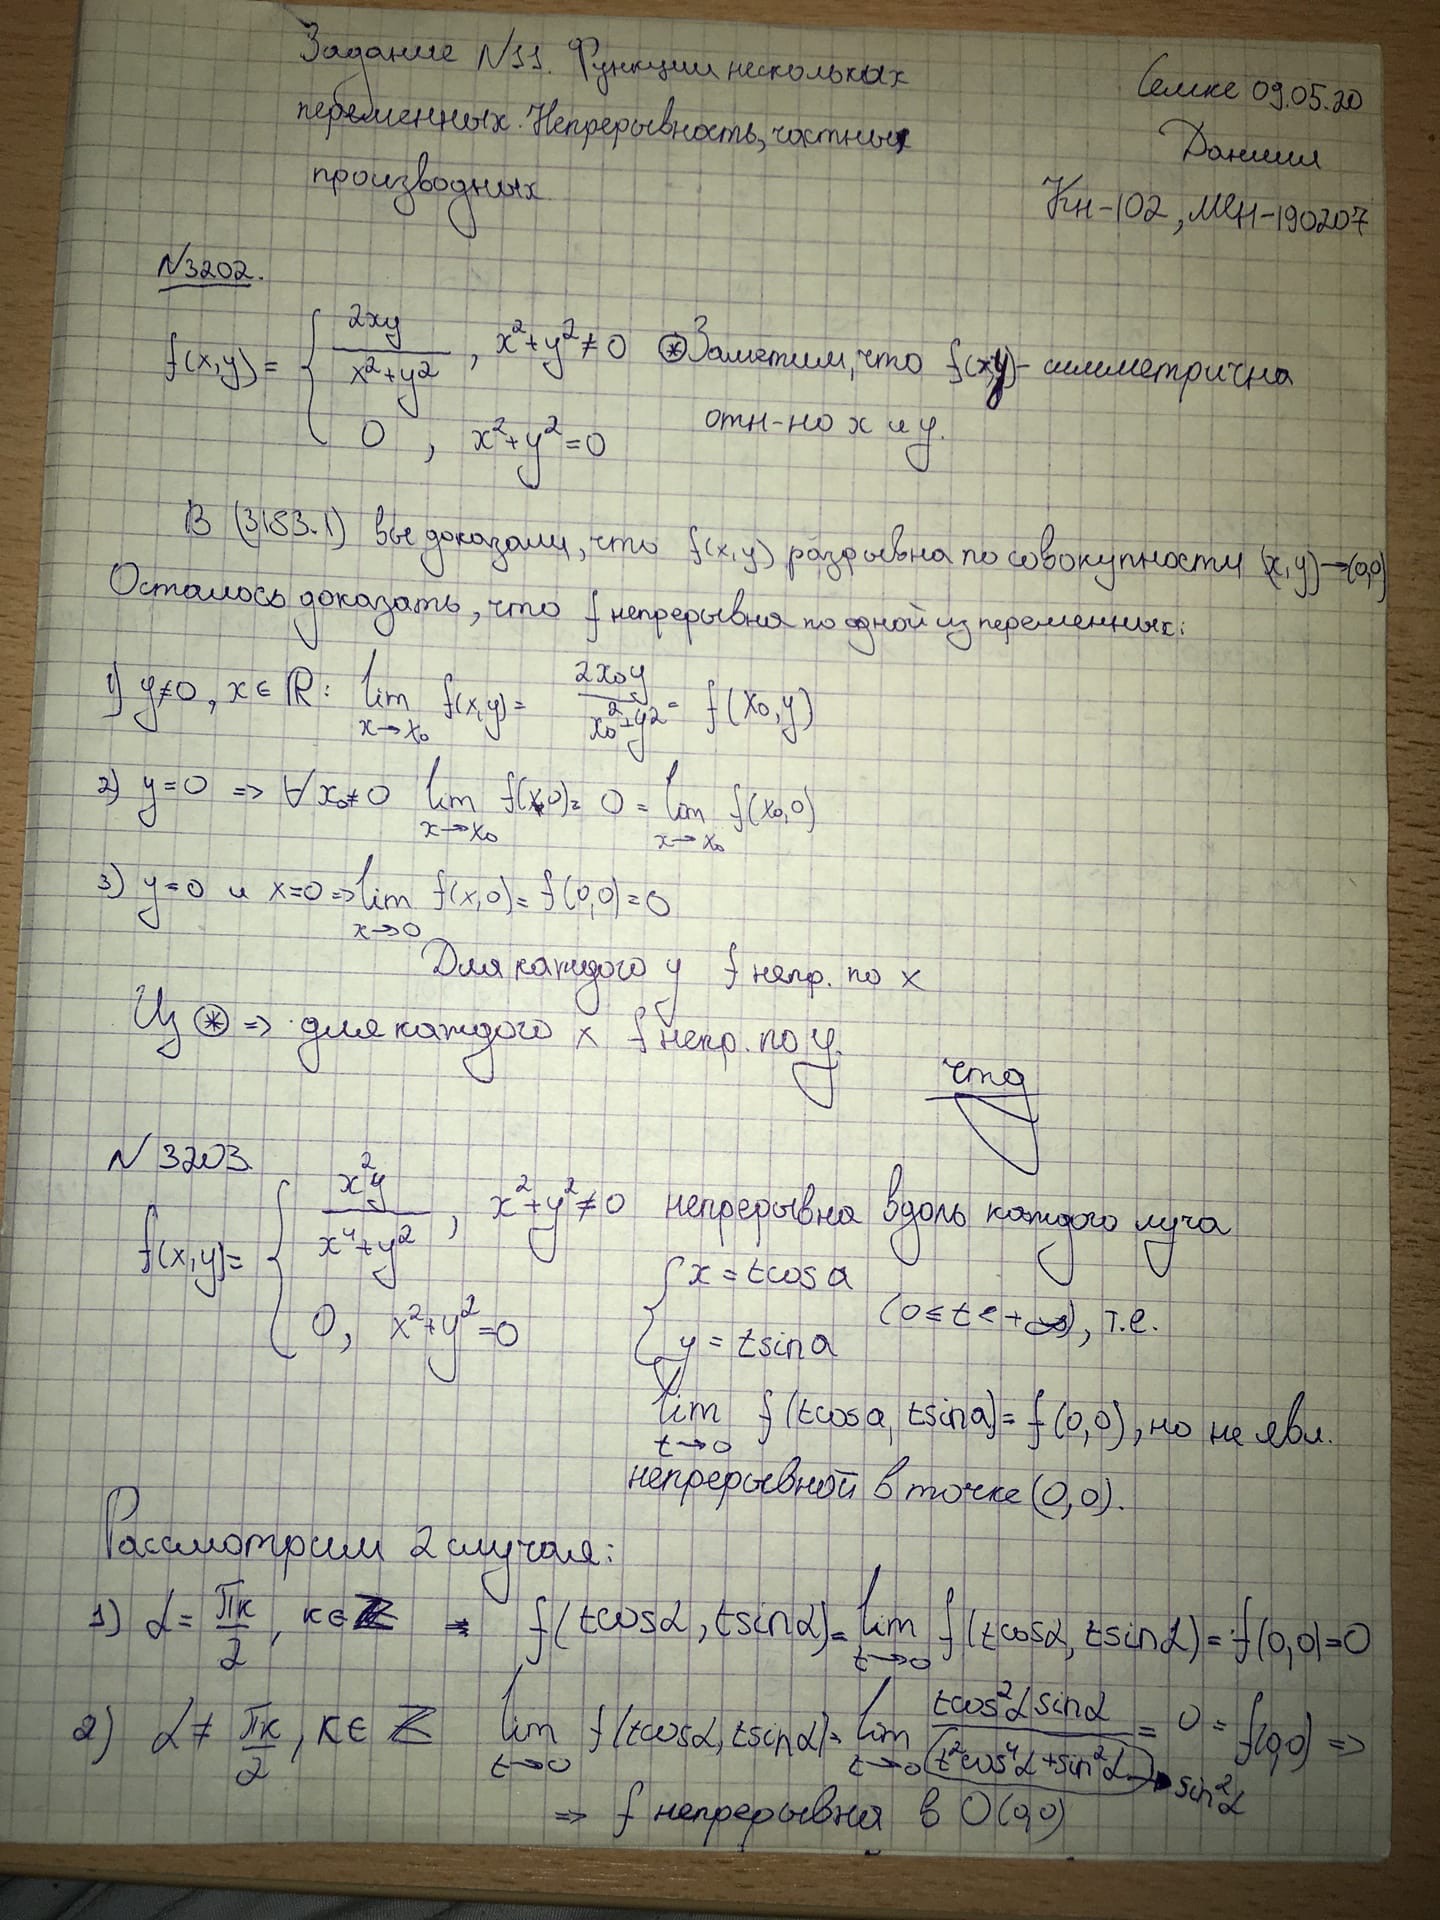 Задание №11. Функции нескольких
переменных. Непрерывность, частных
производных
Семке 09.05.20
Даниил
Кн-102, МЕН-190207
№3202.
f(x,y) = { 2xy / (x²+y²) , x²+y² ≠ 0 ⊛ Заметим, что f(x,y) - симметрична
0 , x²+y² = 0 отн-но x и y.
В (3183.1) вы доказали, что f(x,y) разрывна по совокупности (x,y)→(0,0)
Осталось доказать, что f непрерывна по одной из переменных:
1) y≠0, x∈ℝ: lim x→x₀ f(x,y) = 2x₀y / (x₀²+y²) = f(x₀,y)
2) y=0 => ∀x₀≠0 lim x→x₀ f(x,0) = 0 = lim x→x₀ f(x₀,0)
3) y=0 и x=0 => lim x→0 f(x,0) = f(0,0) = 0
Для каждого y f непр. по x
Из ⊛ => для каждого x f непр. по y.
чтд
№ 3203.
f(x,y) = { x²y / (x⁴+y²) , x²+y² ≠ 0 непрерывна вдоль каждого луча
0, x²+y² = 0 { x = t cos a
y = t sin a (0 ≤ t < +∞), т.е.
lim t→0 f(t cos a, t sin a) = f(0,0), но не явл.
непрерывной в точке (0,0).
Рассмотрим 2 случая:
1) α = πk/2, k∈ℤ => f(t cos α, t sin α) = lim t→0 f(t cos α, t sin α) = f(0,0) = 0
2) α ≠ πk/2, k∈ℤ lim t→0 f(t cos α, t sin α) = lim t→0 t cos²α sin α / (t² cos⁴α + sin²α) → sin²α = 0 = f(0,0) =>
=> f непрерывна в O(0,0)